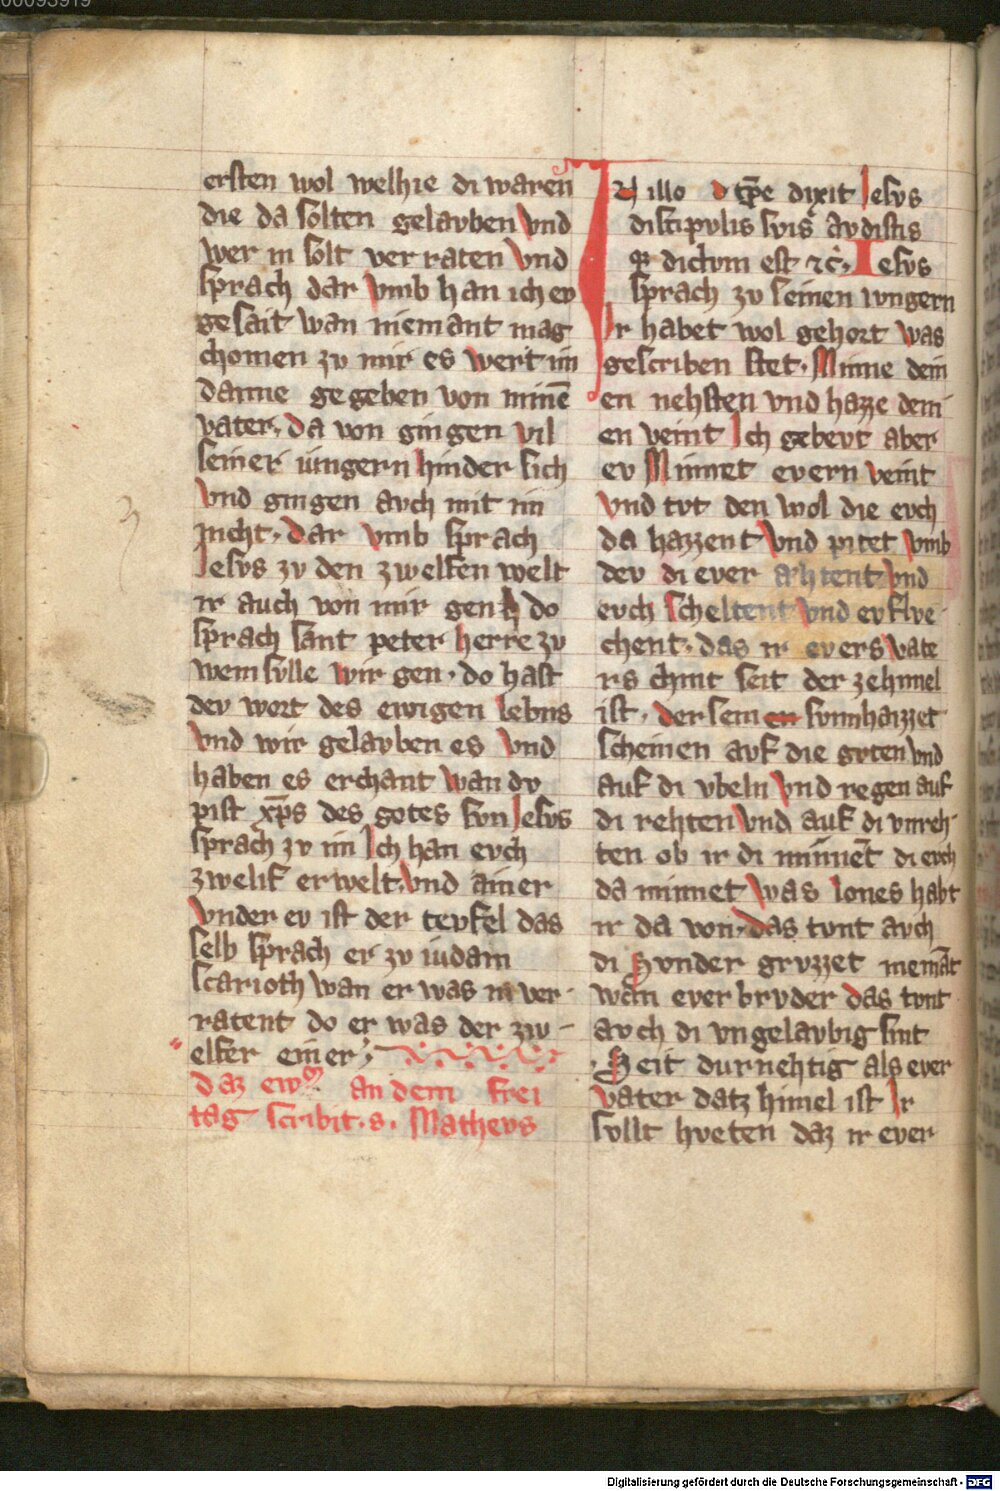 ersten wol welhie di waren
die da solten gelauben Vnd
wer in solt verraten Vnd
sprach dar Vmb han ich ev
gesait wan niemant mag
chomen zv mir es wert im
danne gegeben von minē
vater. da von gingen vil
seiner iungern hinder sich
Vnd gingen avch mit im
nicht. dar vmb sprach
Jesvs zv den zwelfen welt
ir auch von mir gen do
sprach sant peter herre zv
wem svlle wir gen. do hast
dev wort des ewigen lebns
Vnd wir gelavben es Vnd
haben es erchant wan dv
pist xp̄s des gotes svn Jesvs
sprach zv im Ich han evch
zwelif erwelt. Vnd ainer
Vnder ev ist der tevfel das
selb sprach er zv iudam
scarioth wan er was in ver
ratent do er was der zw-
elfer einer
daz ew an dem frei
tag scribit. s. Mathevs
In illo tp̄e dixit Jesvs
discipvlis svis avdistis
qr dictvm est ⁊c̄. Jesvs
sprach zv seinen ivngern
Ir habet wol gehort was
gescriben stet. Minne dein
en nehsten vnd hazze dein
en veint Ich gebevt aber
ev Minnet evern veint
Vnd tvt den wol die evch
da hazzent Vnd pitet Vmb
dev di ever ahtent Vnd
evch scheltent Vnd ev flve
chent. das ir evers vate
rs chint seit der zehimel
ist. der sein svnn haizzet
scheinen avf die gvten Vnd
auf di vbeln Vnd regen auf
di rehten Vnd auf di vnreh
ten ob ir di minnet di evch
da minnet was lones habt
ir da von. das tvnt avch
di Svnder grvzzet niemāt
wan ever brvder das tvnt
avch di vngelavbig sint
Seit durnehtig als ever
vater datz himel ist Ir
svllt hveten daz ir ever
Digitalisierung gefördert durch die Deutsche Forschungsgemeinschaft - DFG